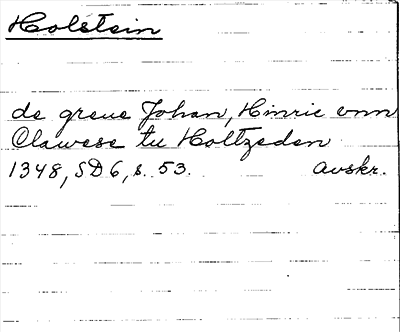 Holstein
de greue Johan, Hinric vnn
Clawese tu Holtzeden
1348, SD 6, s. 53. Avskr.